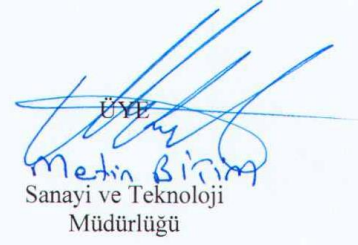 ÜYE
Metin BİTİM
Sanayi ve Teknoloji
Müdürlüğü